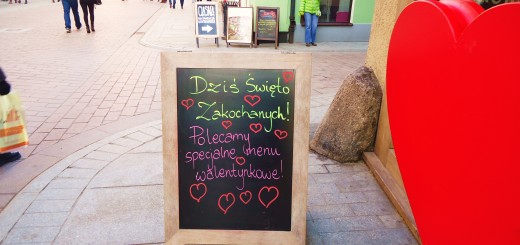 Dziś Święto
Zakochanych!
Polecamy
specjalne menu
walentynkowe!